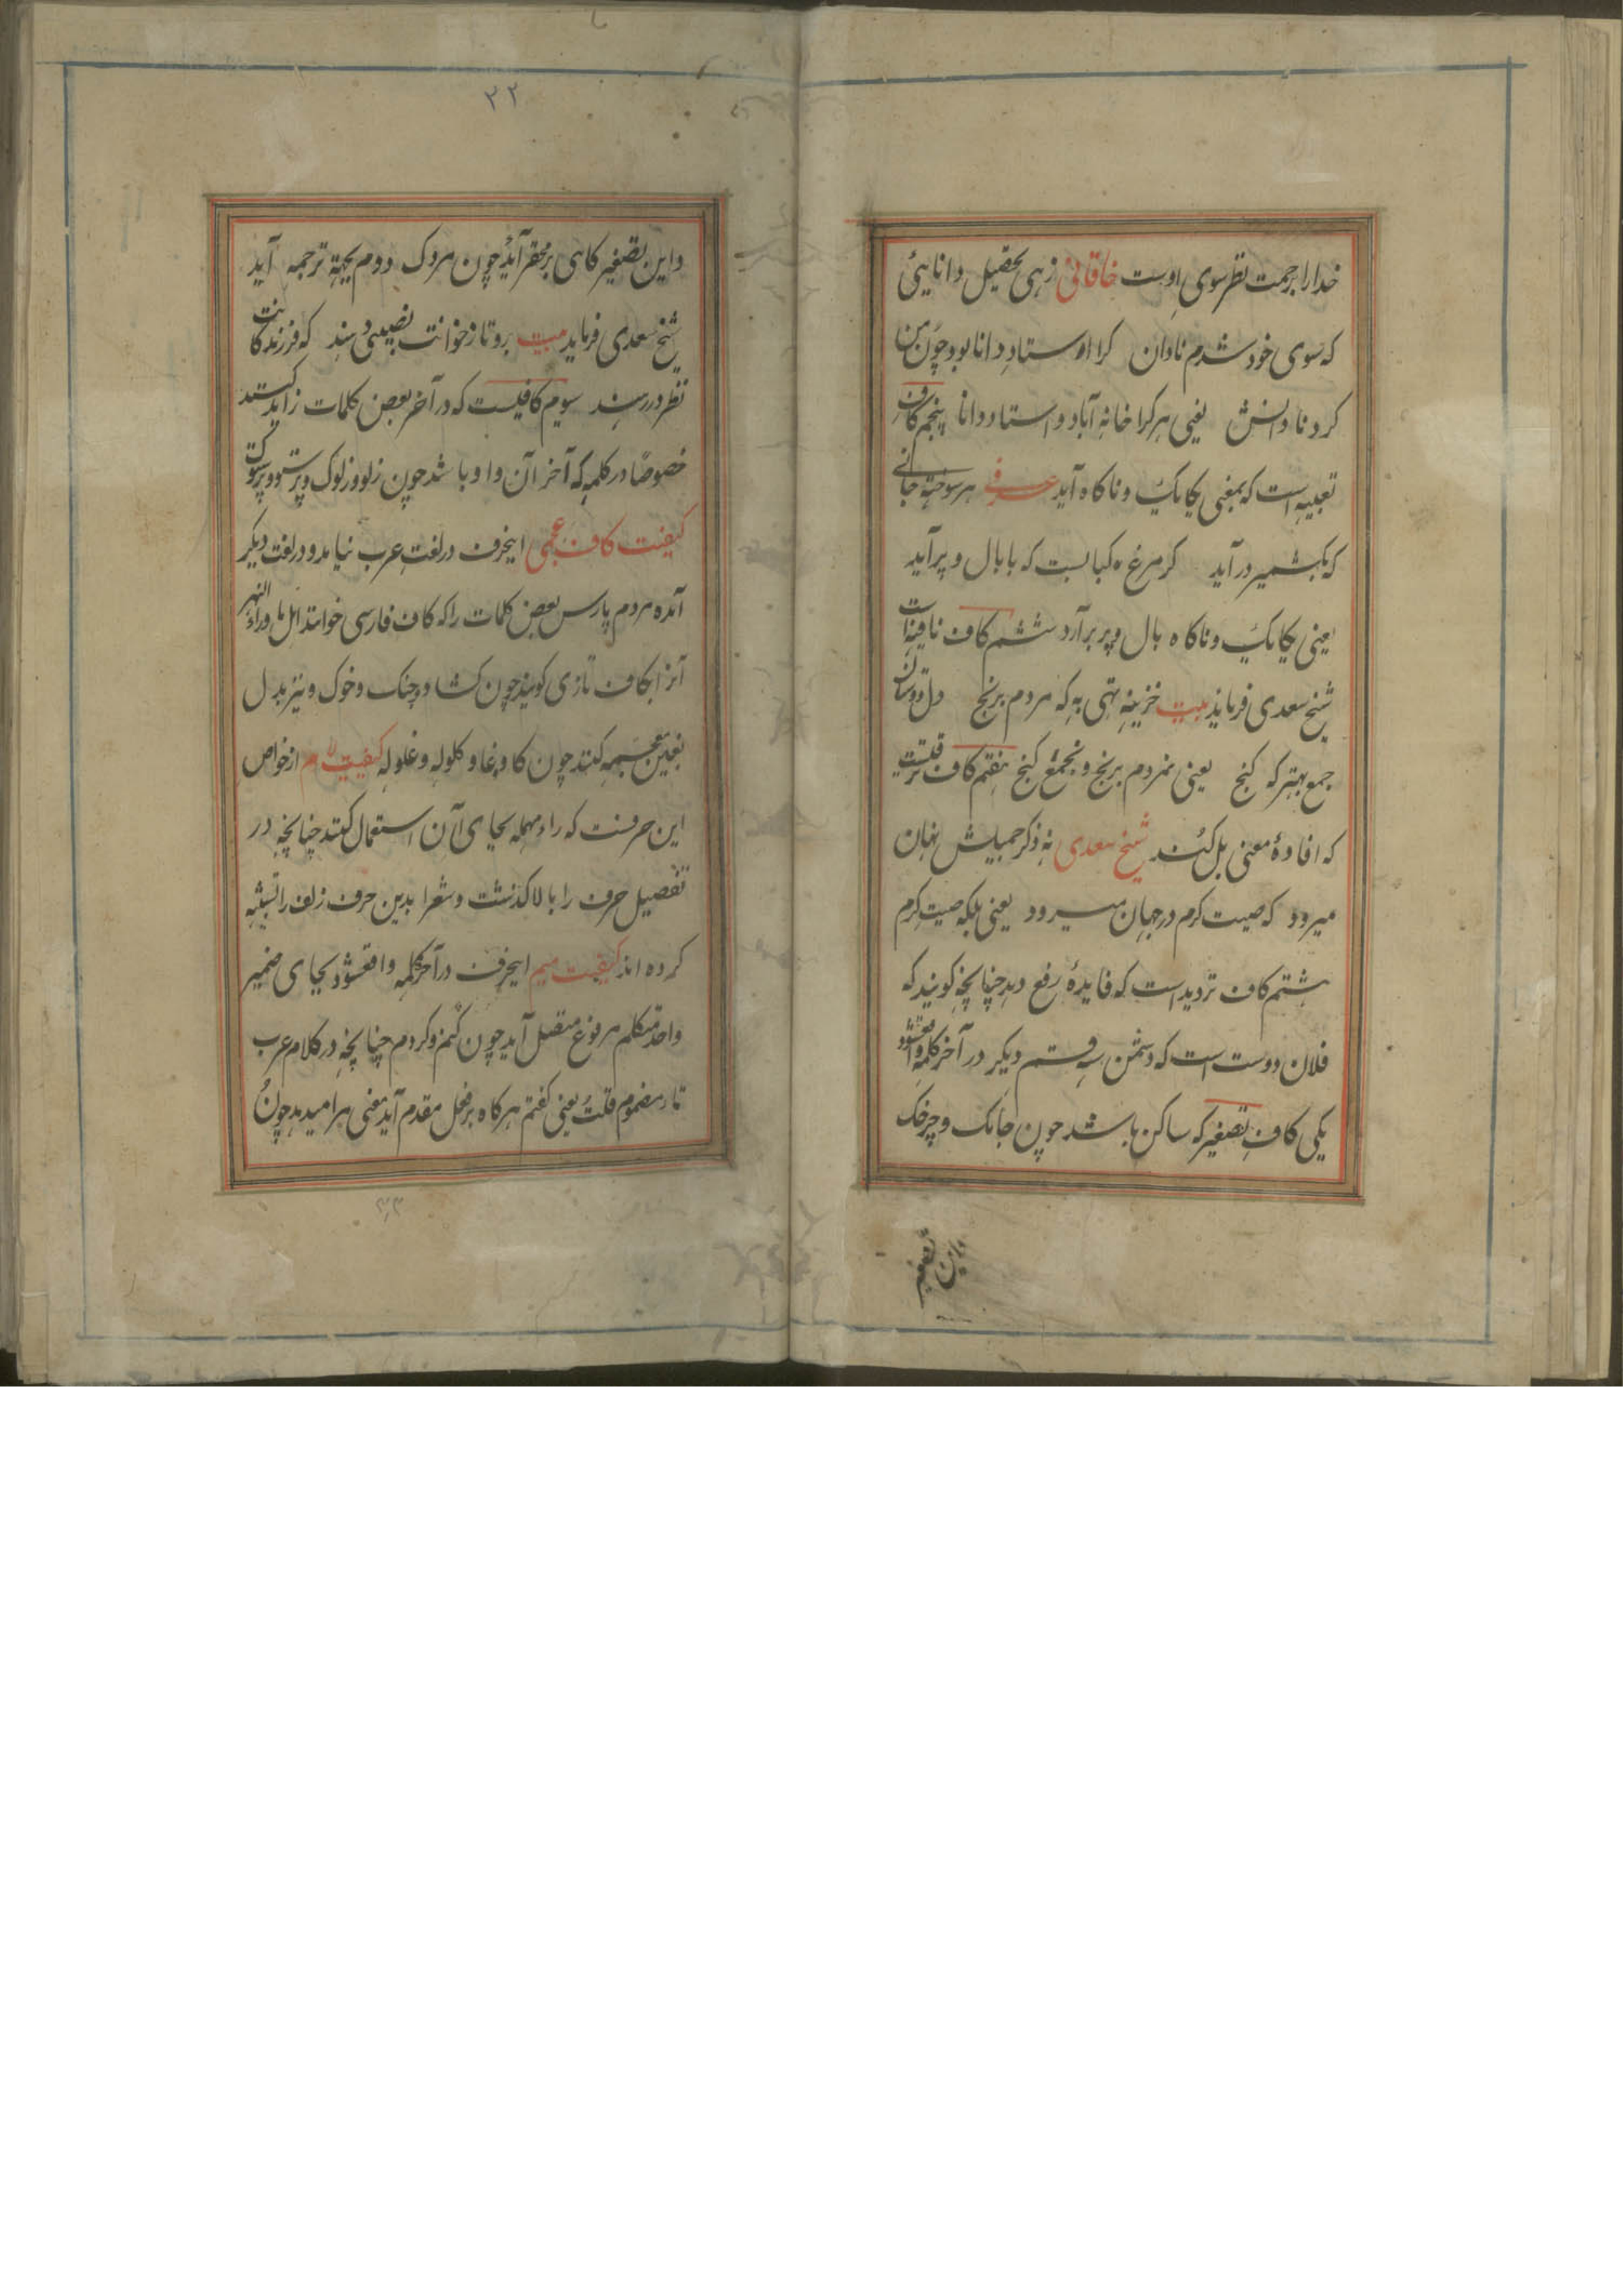 خدا را برحمت نظر سوی اوست خاقانی زهی تحصیل دانایئ
که سوی خود شدم نادان کرا استاد دانا بود چون من
کرد نادانش یعنی هر کرا خانهٔ آباد و استاد دانا پنجم کاف
تعبیه است که بمعنی یکایک و ناکاه آید عرفی هر سوخته جانی
که بکشمیر در آید کر مرغ کبابست که با بال و پر آید
یعنی یکایک و ناکاه بال و پر برآرد ششم کاف نافیه است
شیخ سعدی فرماید بیت خزینه تهی به که مردم برنج دل دوستان
جمع بهتر که کنج یعنی نمردم برنج و نجمع کنج هفتم کاف
که افادهٔ معنی بل کند شیخ سعدی نه ذکر جمیلش نهان
میرود که صیت کرم در جهان میرود یعنی بلکه صیت کرم
هشتم کاف تردید است که فایدهٔ رفع دهد چنانچه کویند که
فلان دوست است که دشمن سه قسم دیکر در آخر کلمه واقعشود
یکی کاف تصغیر که ساکن باشد چون جانک و چرخک
واین تصغیر
۲۲
واین تصغیر کاهی بر محقر آید چون مردک دوم بجهة ترحمه آید
شیخ سعدی فرماید بیت برو تا ز خوانت نصیبی دهند که فرزندکانت
نظر در رهند سوم کافیست که در آخر بعضی کلمات زاید کنند
خصوصا در کلمه که آخر آن واو باشد چون زلو و زلوک و پرستو و پرستوک
کیفیت کاف عجمی اینحرف در لغت عرب نیامده و در لغت دیکر
آمده مردم پارس بعضی کلمات را که کاف فارسی خوانند اهل ماوراء النهر
آنرا بکاف تازی کویند چون کشاد و چنک و خوک و نیز بدل
بغین معجمه کنند چون کاو و غاو کلوله و غلوله کیفیت لام از خواص
این حرفست که راء مهمله بجای آن استعمال کنند چنانچه در
تفصیل حرف را بالا کذشت و شعرا بدین حرف زلف را تشبیه
کرده اند کیفیت میم اینحرف در آخر کلمه واقعشود بجای ضمیر
واحد متکلم مرفوع متصل آید چون کنم و کردم چنانچه در کلام عرب
تاء مضموم قلت یعنی کفتم هر کاه بر فعل مقدم آید معنی مرا میدهد چون